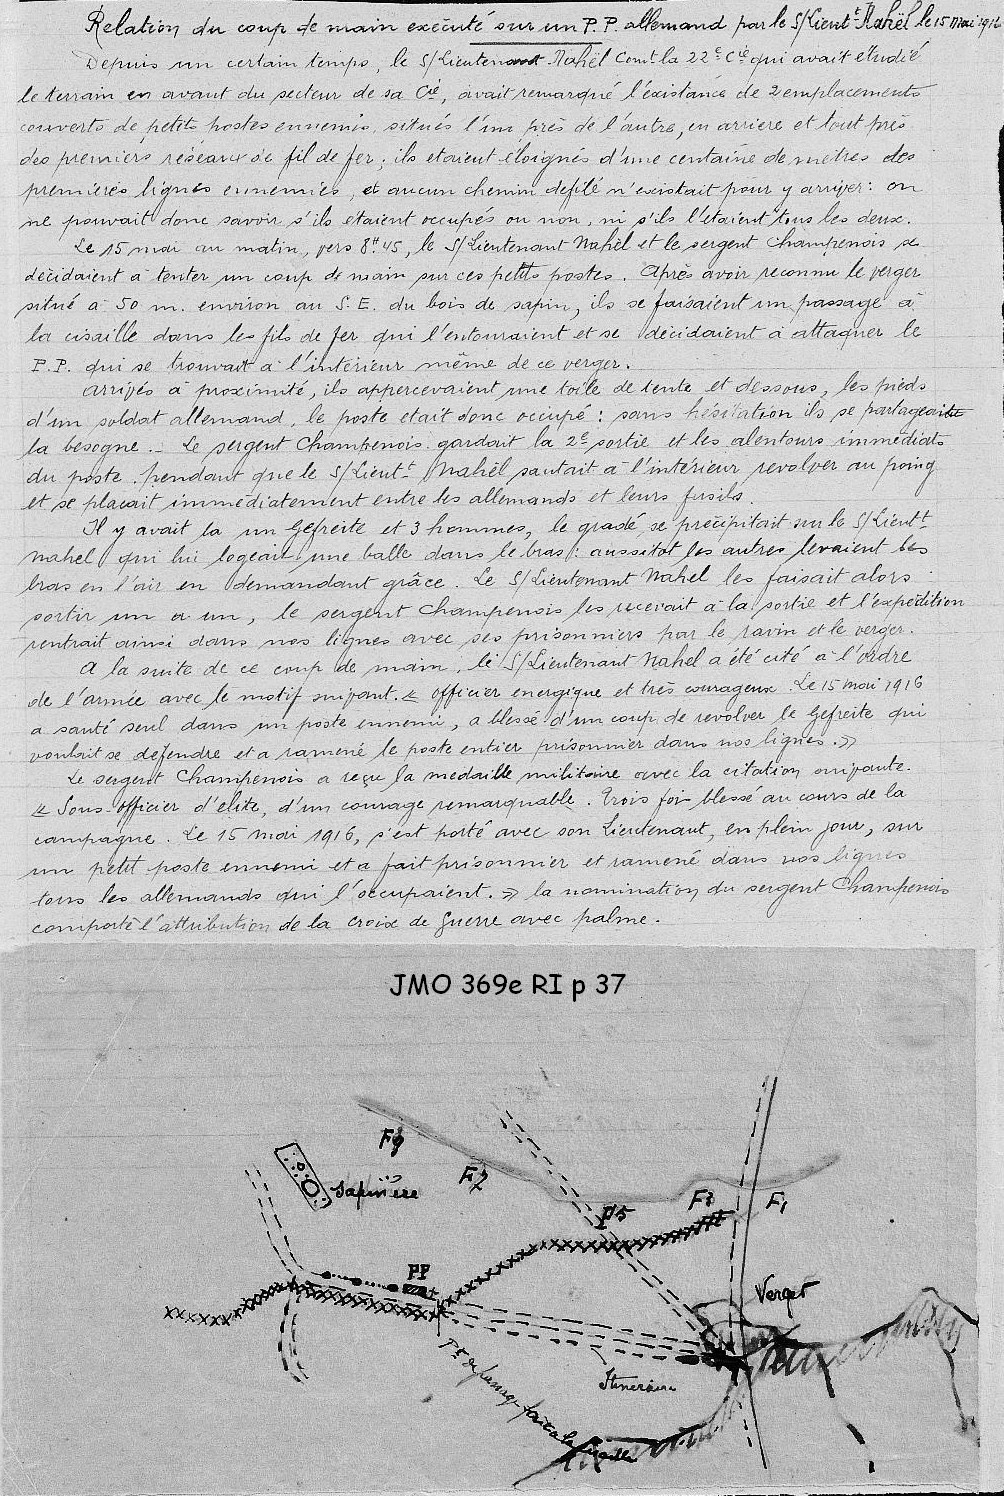 Relation du coup de main exécuté sur un P.P. allemand par le S/Lieutt Nahël le 15 Mai 1916
Depuis un certain temps, le S/Lieutenant Nahël Comt la 22e Cie qui avait étudié
le terrain en avant du secteur de sa Cie, avait remarqué l'éxistance de 2 emplacements
couverts de petits postes ennemis, situés l'un près de l'autre, en arriere et tout près
des premiers réseaux de fil de fer; ils etaient éloignés d'une centaine de mètres des
premieres lignes ennemies, et aucun chemin défilé n'existait pour y arriver: on
ne pouvait donc savoir s'ils etaient occupés ou non, ni s'ils l'étaient tous les deux.
Le 15 mai au matin, vers 8H45, le S/Lieutenant Nahël et le sergent Champenois se
décidaient à tenter un coup de main sur ces petits postes. Après avoir reconnu le verger
situé à 50 m. environ au S.E. du bois de sapin, ils se faisaient un passage à
la cisaille dans les fils de fer qui l'entouraient et se décidaient à attaquer le
P.P. qui se trouvait à l'intérieur même de ce verger.
Arrivés à proximité, ils appercevaient une toile de tente et dessous, les pieds
d'un soldat allemand, le poste etait donc occupé: sans hésitation ils se partageaient
la besogne. - Le sergent Champenois gardait la 2e sortie et les alentours immédiats
du poste pendant que le S/Lieutt Nahël sautait à l'intérieur, revolver au poing
et se placait immédiatement entre les allemands et leurs fusils.
Il y avait la un Gefreite et 3 hommes, le gradé se précipitait sur le S/Lieutt
Nahel qui lui logeait une balle dans le bras: aussitot les autres levaient les
bras en l'air en demandant grâce. Le S/Lieutenant Nahel les faisait alors
sortir un a un, le sergent Champenois les recevait à la sortie et l'expédition
rentrait ainsi dans nos lignes avec ses prisonniers par le ravin et le verger.
A la suite de ce coup de main, le S/Lieutenant Nahel a été cité à l'ordre
de l'armée avec le motif suivant. « officier energique et très courageux. Le 15 Mai 1916
a sauté seul dans un poste ennemi, a blessé d'un coup de revolver le Gefreite qui
voulait se défendre et a ramené le poste entier prisonnier dans nos lignes. »
Le sergent Champenois a reçu la médaille militaire avec la citation suivante.
« Sous-officier d'élite, d'un courage remarquable. Trois fois blessé au cours de la
campagne. Le 15 Mai 1916, s'est porté avec son Lieutenant, en plein jour, sur
un petit poste ennemi et a fait prisonnier et ramené dans nos lignes
tous les allemands qui l'occupaient. » la nomination du sergent Champenois
comporte l'attribution de la croix de Guerre avec palme.
JMO 369e RI p 37
F9
F7
Sapinière
F5
F3
F1
PP
Verger
Itineraire
Pt de passage fait à la Cisaille